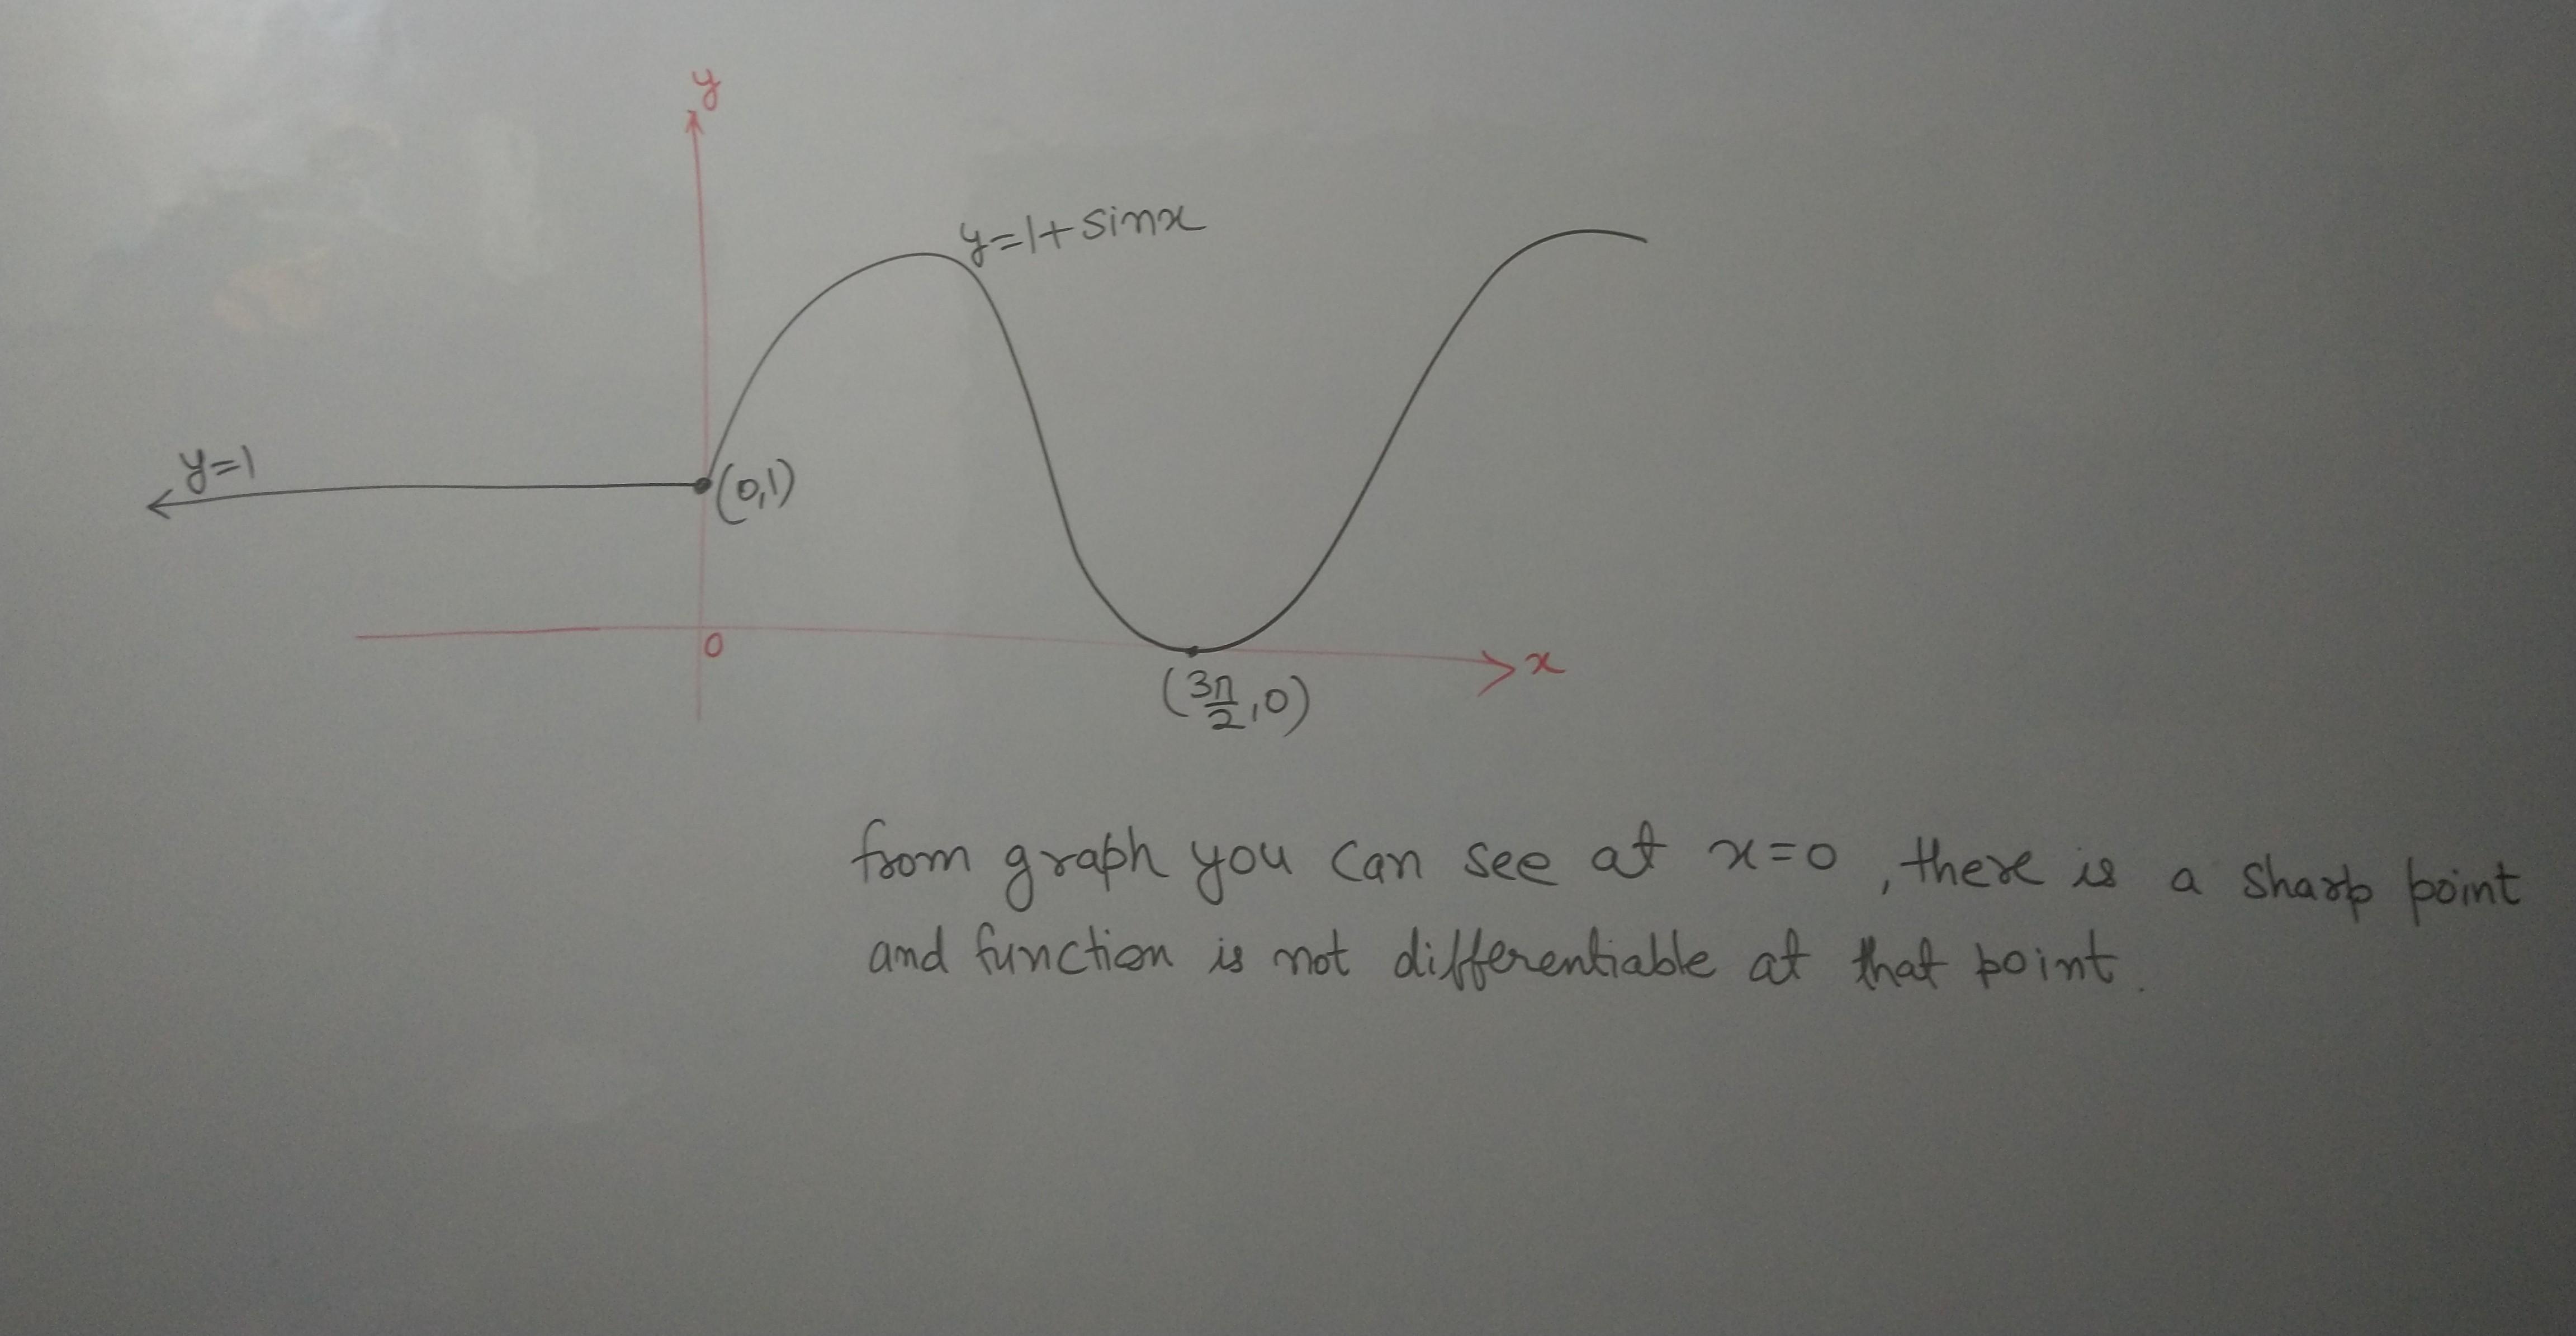 y
y=1+sinx
y=1
(0,1)
0
x
(3π/2,0)
from graph you can see at x=0, there is a sharp point
and function is not differentiable at that point.